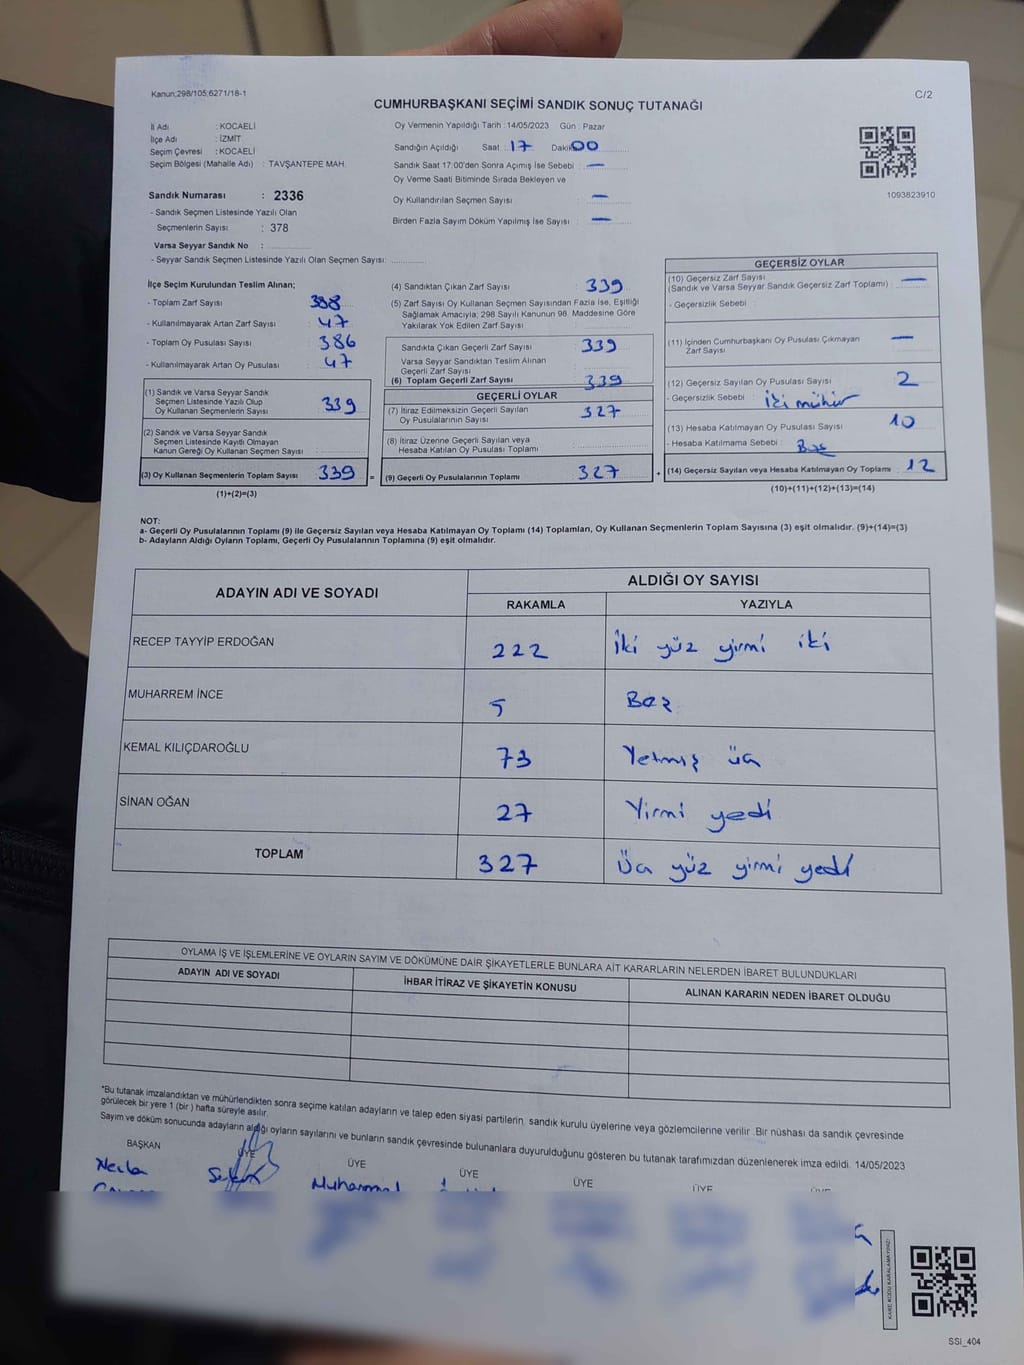 Kanun;298/105;6271/18-1
C/2
CUMHURBAŞKANI SEÇİMİ SANDIK SONUÇ TUTANAĞI
İl Adı : KOCAELİ
İlçe Adı : İZMİT
Seçim Çevresi : KOCAELİ
Seçim Bölgesi (Mahalle Adı) : TAVŞANTEPE MAH.
Sandık Numarası : 2336
- Sandık Seçmen Listesinde Yazılı Olan
Seçmenlerin Sayısı : 378
Varsa Seyyar Sandık No :
- Seyyar Sandık Seçmen Listesinde Yazılı Olan Seçmen Sayısı:
Oy Vermenin Yapıldığı Tarih : 14/05/2023 Gün : Pazar
Sandığın Açıldığı Saat : 17 Dakika 00
Sandık Saat 17:00'den Sonra Açımış İse Sebebi : —
Oy Verme Saati Bitiminde Sırada Bekleyen ve
Oy Kullandırılan Seçmen Sayısı : —
Birden Fazla Sayım Döküm Yapılmış İse Sayısı : —
1093823910
İlçe Seçim Kurulundan Teslim Alınan;
- Toplam Zarf Sayısı : 388
- Kullanılmayarak Artan Zarf Sayısı : 47
- Toplam Oy Pusulası Sayısı : 386
- Kullanılmayarak Artan Oy Pusulası : 47
(1) Sandık ve Varsa Seyyar Sandık
Seçmen Listesinde Yazılı Olup
Oy Kullanan Seçmenlerin Sayısı : 339
(2) Sandık ve Varsa Seyyar Sandık
Seçmen Listesinde Kayıtlı Olmayan
Kanun Gereği Oy Kullanan Seçmen Sayısı :
(3) Oy Kullanan Seçmenlerin Toplam Sayısı : 339 =
(1)+(2)=(3)
(4) Sandıktan Çıkan Zarf Sayısı : 339
(5) Zarf Sayısı Oy Kullanan Seçmen Sayısından Fazla İse, Eşitliği
Sağlamak Amacıyla; 298 Sayılı Kanunun 98. Maddesine Göre
Yakılarak Yok Edilen Zarf Sayısı :
Sandıkta Çıkan Geçerli Zarf Sayısı : 339
Varsa Seyyar Sandıktan Teslim Alınan
Geçerli Zarf Sayısı :
(6) Toplam Geçerli Zarf Sayısı : 339
GEÇERLİ OYLAR
(7) İtiraz Edilmeksizin Geçerli Sayılan
Oy Pusulalarının Sayısı : 327
(8) İtiraz Üzerine Geçerli Sayılan veya
Hesaba Katılan Oy Pusulası Toplamı :
(9) Geçerli Oy Pusulalarının Toplamı : 327 +
GEÇERSİZ OYLAR
(10) Geçersiz Zarf Sayısı
(Sandık ve Varsa Seyyar Sandık Geçersiz Zarf Toplamı) : —
- Geçersizlik Sebebi :
(11) İçinden Cumhurbaşkanı Oy Pusulası Çıkmayan
Zarf Sayısı : —
(12) Geçersiz Sayılan Oy Pusulası Sayısı : 2
- Geçersizlik Sebebi : İki mühür
(13) Hesaba Katılmayan Oy Pusulası Sayısı : 10
- Hesaba Katılmama Sebebi : Boş
(14) Geçersiz Sayılan veya Hesaba Katılmayan Oy Toplamı : 12
(10)+(11)+(12)+(13)=(14)
NOT:
a- Geçerli Oy Pusulalarının Toplamı (9) ile Geçersiz Sayılan veya Hesaba Katılmayan Oy Toplamı (14) Toplamları, Oy Kullanan Seçmenlerin Toplam Sayısına (3) eşit olmalıdır. (9)+(14)=(3)
b- Adayların Aldığı Oyların Toplamı, Geçerli Oy Pusulalarının Toplamına (9) eşit olmalıdır.
ADAYIN ADI VE SOYADI ALDIĞI OY SAYISI
RAKAMLA YAZIYLA
RECEP TAYYİP ERDOĞAN 222 İki yüz yirmi iki
MUHARREM İNCE 5 Beş
KEMAL KILIÇDAROĞLU 73 Yetmiş üç
SİNAN OĞAN 27 Yirmi yedi
TOPLAM 327 Üç yüz yirmi yedi
OYLAMA İŞ VE İŞLEMLERİNE VE OYLARIN SAYIM VE DÖKÜMÜNE DAİR ŞİKAYETLERLE BUNLARA AİT KARARLARIN NELERDEN İBARET BULUNDUKLARI
ADAYIN ADI VE SOYADI İHBAR İTİRAZ VE ŞİKAYETİN KONUSU ALINAN KARARIN NEDEN İBARET OLDUĞU
*Bu tutanak imzalandıktan ve mühürlendikten sonra seçime katılan adayların ve talep eden siyasi partilerin, sandık kurulu üyelerine veya gözlemcilerine verilir. Bir nüshası da sandık çevresinde
görülecek bir yere 1 (bir) hafta süreyle asılır.
Sayım ve döküm sonucunda adayların aldığı oyların sayılarını ve bunların sandık çevresinde bulunanlara duyurulduğunu gösteren bu tutanak tarafımızdan düzenlenerek imza edildi. 14/05/2023
BAŞKAN ÜYE ÜYE ÜYE ÜYE ÜYE ÜYE
KARE KODU KARALAMAYINIZ!
SSİ_404